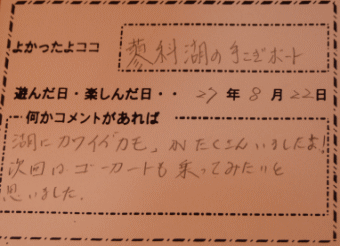 よかったよココ
蓼科湖の手こぎボート
遊んだ日・楽しんだ日・・ 27年8月22日
何かコメントがあれば
湖にカワイイカモ、がたくさんいましたよ!
次回はゴーカートも乗ってみたいと
思いました。